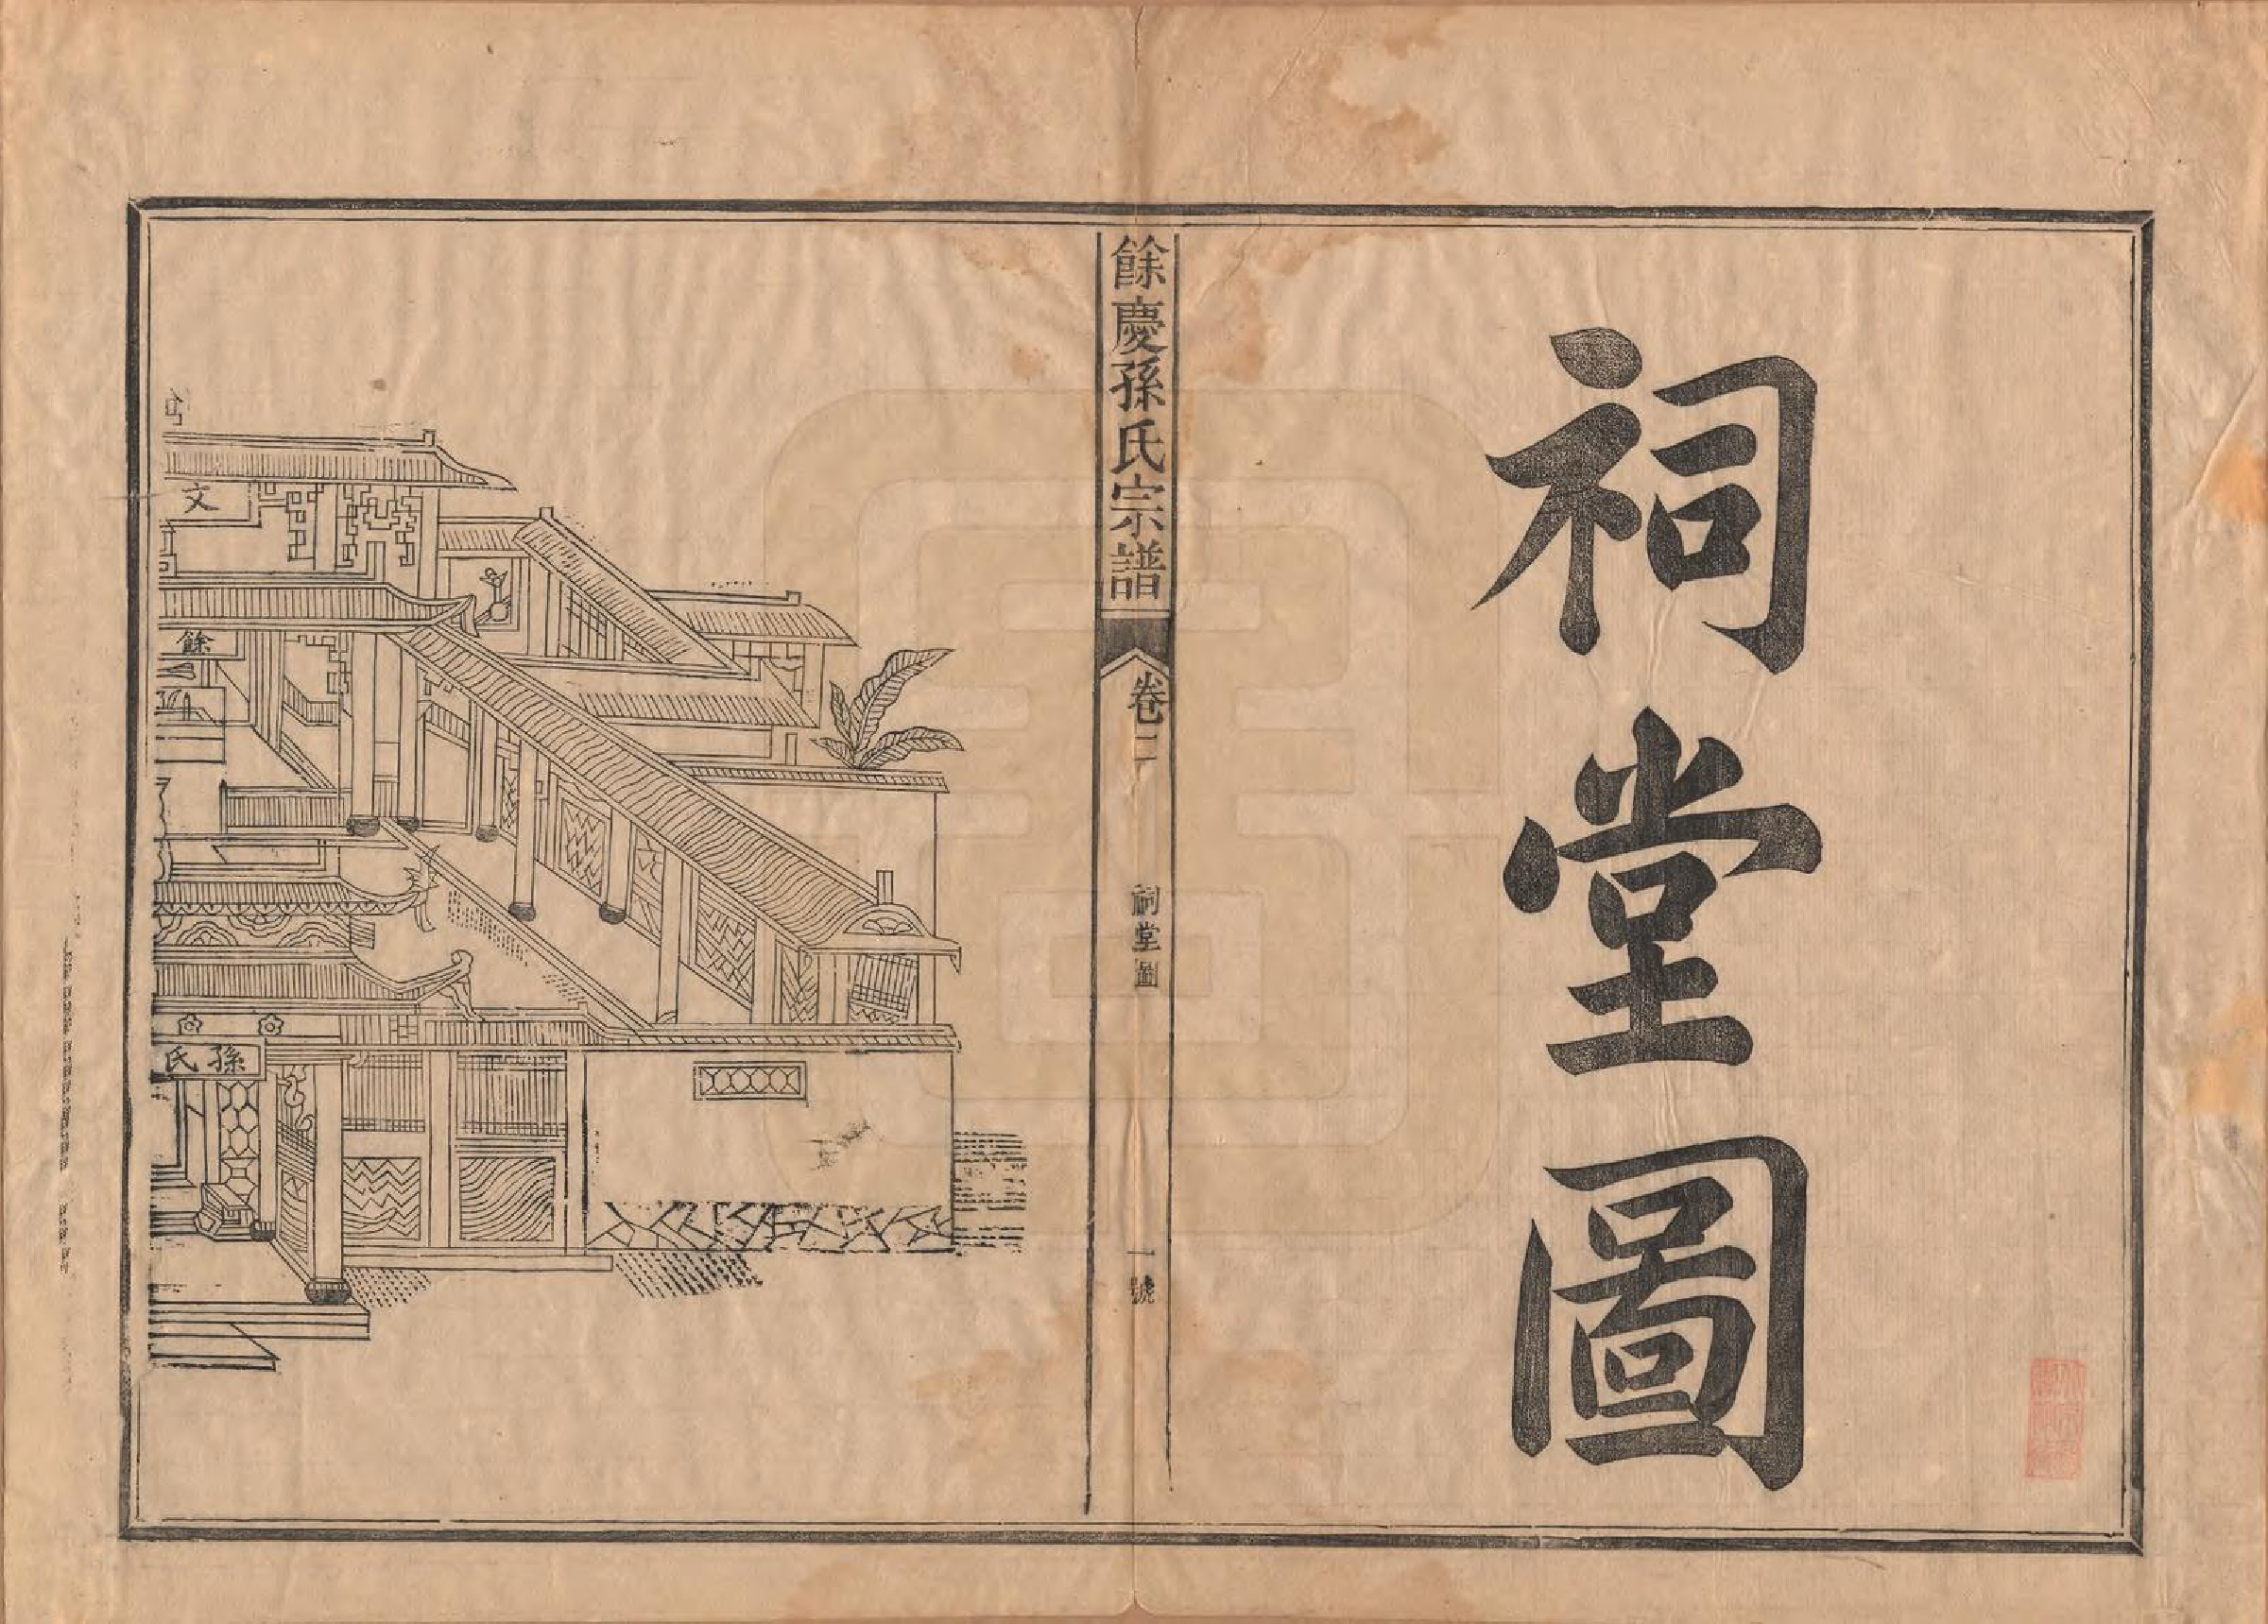 祠堂圖
餘慶孫氏宗譜
卷二
祠堂圖
一號
文
餘
孫氏